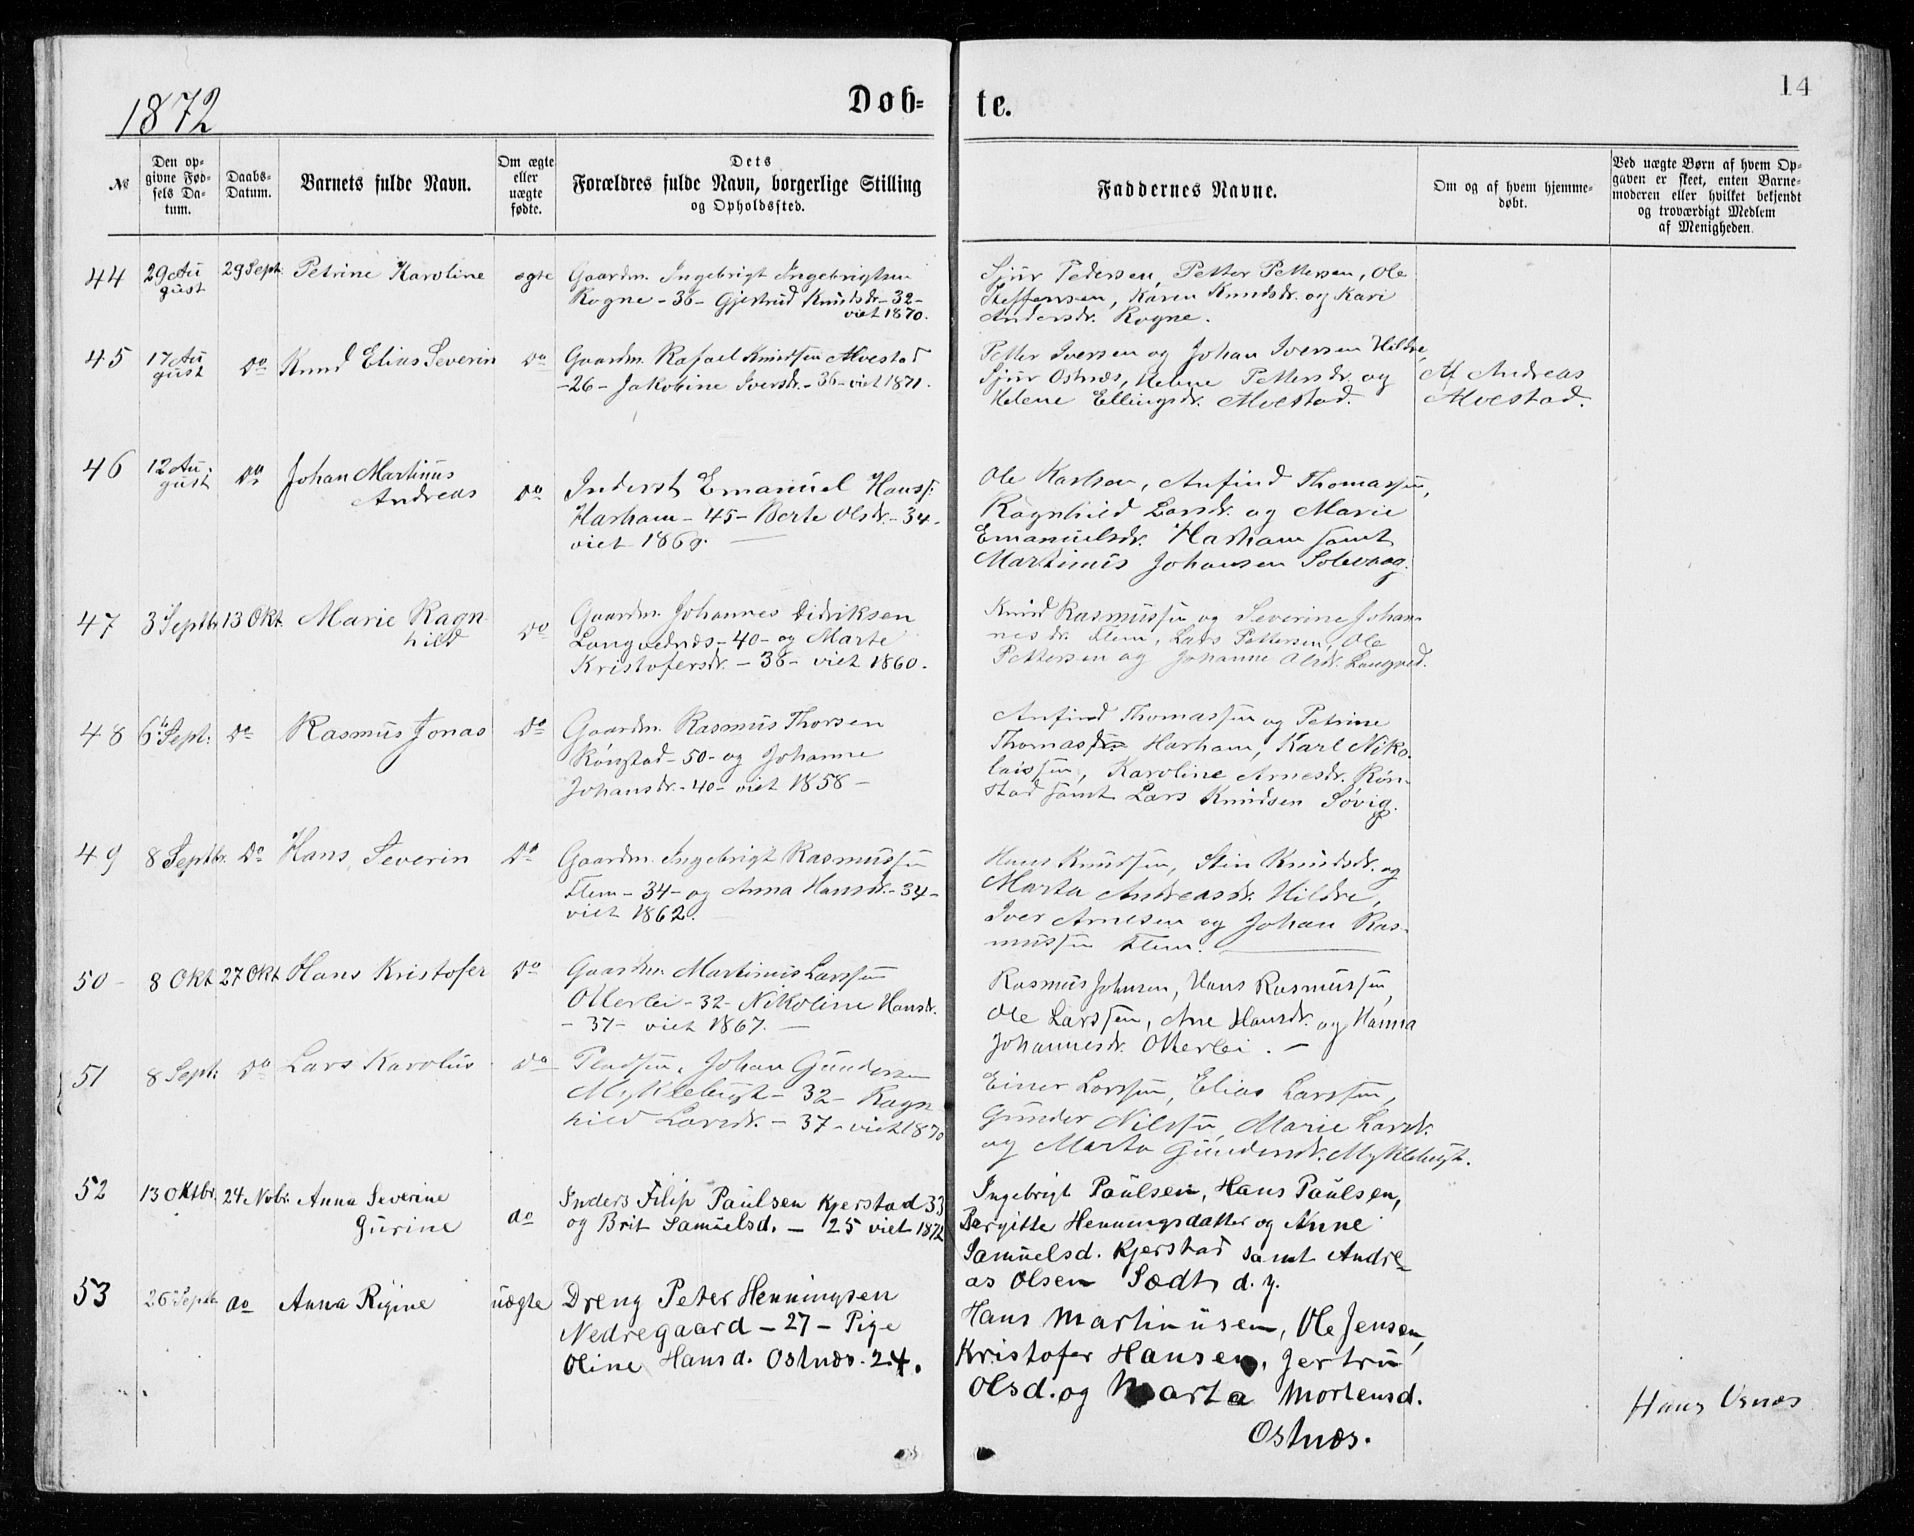 1872
Døb-
te.
14
№
Den op-
givne Fød-
sels Da-
tum.
Daabs-
Datum.
Barnets fulde Navn.
Om ægte
eller
uægte
fødte.
Dets
Forældres fulde Navn, borgerlige Stilling
og Opholdssted.
Faddernes Navne.
Om og af hvem hjemme-
døbt.
Ved uægte Børn af hvem Op-
gaven er skeet, enten Barne-
moderen eller hvilket bekjendt
og troværdigt Medlem
af Menigheden.
44
29 Au
gust
29 Sept.
Petrine Karoline
ægte
Gaardm. Ingebrigt Ingebrigtsen
Rogne - 36 - Gjertrud Knudsdr. - 32 -
viet 1870.
Sjur Pedersen, Petter Pettersen, Ole
Steffensen, Karen Knudsdr. og Kari
Andersdr. Rogne.
45
17 Au
gust
Do
Knud Elias Severin
Do
Gaardm. Rafael Knudsen Alvestad
- 26 - Jakobine Iversdr. - 36 - viet 1871.
Petter Iversen og Johan Iversen Hildre,
Sjur Ostnæs, Helene Pettersdr. og
Helene Ellingsdr. Alvestad.
Af Andreas
Alvestad.
46
12 Au-
gust
Do
Johan Martinus
Andreas
Do
Inderst Emanuel Hanss.
Harham - 45 - Berte Olsdr. - 34 -
viet 1860.
Ole Harham, Anfind Thomassen,
Ragnhild Larsdr. og Marie
Emanuelsdr. Harham samt
Martinus Johansen Solevaag.
47
3 Septbr
13 Okt.
Marie Ragn
hild
Do
Gaardm. Johannes Didriksen
Longvednæs - 40 - og Marte
Kristofersdr. - 38 - viet 1860.
Knud Rasmussen og Severine Johan-
nesdr. Flem, Lars Pettersen, Ole
Pettersen og Johanne Olsdr. Longved.
48
6te Sept:
Do
Rasmus Jonas
Do
Gaardm. Rasmus Thorsen
Rønstad - 50 - og Johanne
Johansdr. - 40 - viet 1858 -
Anfind Thomassen og Petrine
Thomasdr. Harham, Karl Niko-
laissen, Karoline Arnesdr. Røn-
stad samt Lars Knudsen Søvig.
49
8 Septbr.
Do
Hans Severin
Do
Gaardm. Ingebrigt Rasmussen
Flem - 34 - og Anna Hansdr. - 34 -
viet 1862.
Hans Knudsen, Stin Knudsdr. og
Marta Andreasdr. Hildre,
Iver Arnesen og Johan Ras-
mussen Flem.
50 -
8 Okt
27 Okt
Hans Kristofer
Do
Gaardm. Martinus Larssen
Otterlei - 32 - Nikoline Hansdr.
- 37 - viet 1867. -
Rasmus Johnsen, Hans Rasmussen,
Ole Larssen, Ane Hansdr. og Hanna
Johannesdr. Otterlei. -
51
8 Sept:
Do
Lars Karolus
do
Pladsm. Johan Gundersen
Myklebust - 32 - Ragn
hild Larsdr. - 37 - viet 1870
Einer Larssen, Elias Larssen,
Gunder Nilssen, Marie Larsdr.
og Marta Gundersdr. Myklebust.
52
13 Oktbr.
24 Novbr.
Anna Severine
Gurine
do
Inders Filip Paulsen Kjerstad 33
og Brit Samuelsd. - 25 viet 1872
Ingebrigt Paulsen, Hans Paulsen,
Bergitte Henningsdatter og Anne
Samuelsd. Kjerstad samt Andre-
as Olsen Sædt d. y.
53
26 Septbr
do
Anna Rigine
uægte
Dreng Peter Henningsen
Nedregaard - 27 - Pige
Oline Hansd. Ostnæs. 24.
Hans Martinusen, Ole Jensen,
Kristofer Hansen, Jertru
Olsd. og Marta Mortensd.
Ostnæs.
Hans Osnæs